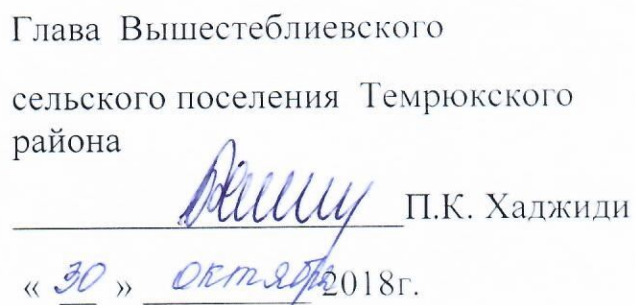 Глава Вышестеблиевского
сельского поселения Темрюкского
района
П.К. Хаджиди
« 30 » октября 2018г.